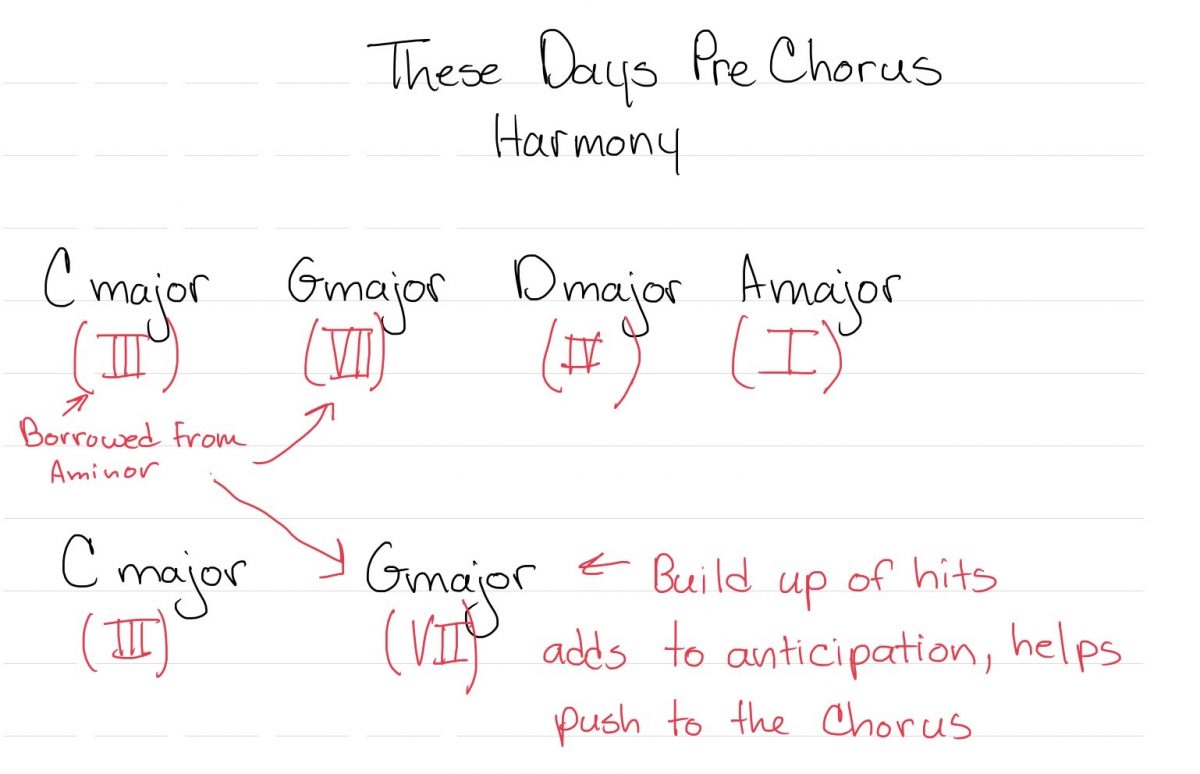 These Days Pre Chorus
Harmony
C major Gmajor Dmajor Amajor
(III) (VII) (IV) (I)
Borrowed from
Aminor
C major Gmajor ← Build up of hits
(III) (VII) adds to anticipation, helps
push to the Chorus